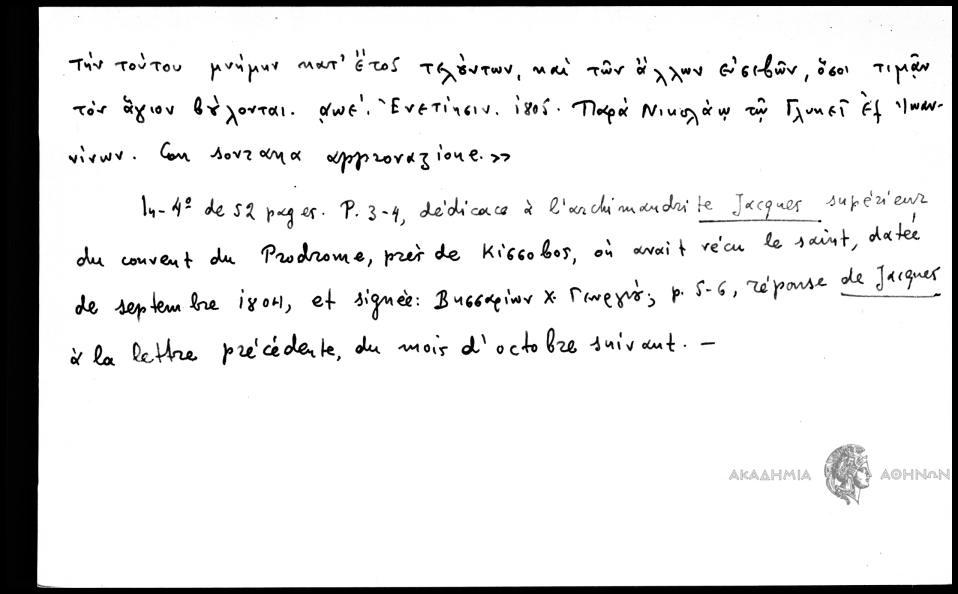 τὴν τούτου μνήμην κατ' ἔτος τελούντων, καὶ τῶν ἄλλων εὐσεβῶν, ὅσοι τιμᾷν
τὸν ἅγιον βούλονται. ͵αωε΄. Ἐνετίῃσιν. 1805. Παρὰ Νικολάῳ τῷ Γλυκεῖ ἐξ Ἰωαν-
νίνων. Con sovrana approvazione.»
In-4º de 52 pages. P. 3-4, dédicace à l'archimandrite Jacques supérieur
du couvent du Prodrome, près de Kissobos, où avait vécu le saint, datée
de septembre 1804, et signée: Βησσαρίων Χ. Γεωργίου; p. 5-6, réponse de Jacques
à la lettre précédente, du mois d'octobre suivant. –
ΑΚΑΔΗΜΙΑ ΑΘΗΝΩΝ